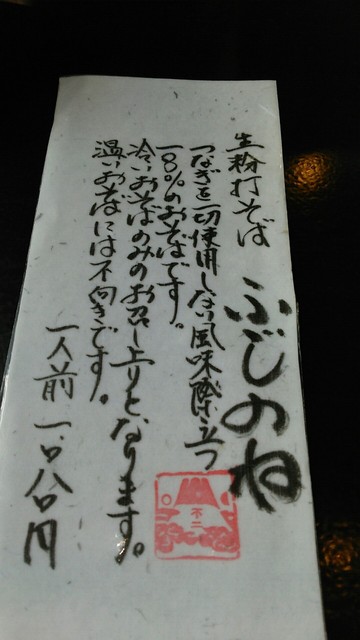 生粉打そば
ふじのね
つなぎを一切使用しない風味際立つ
一〇〇%のおそばです。
冷いおそばのみのお召し上りとなります。
温いおそばには不向きです。
一人前
不二